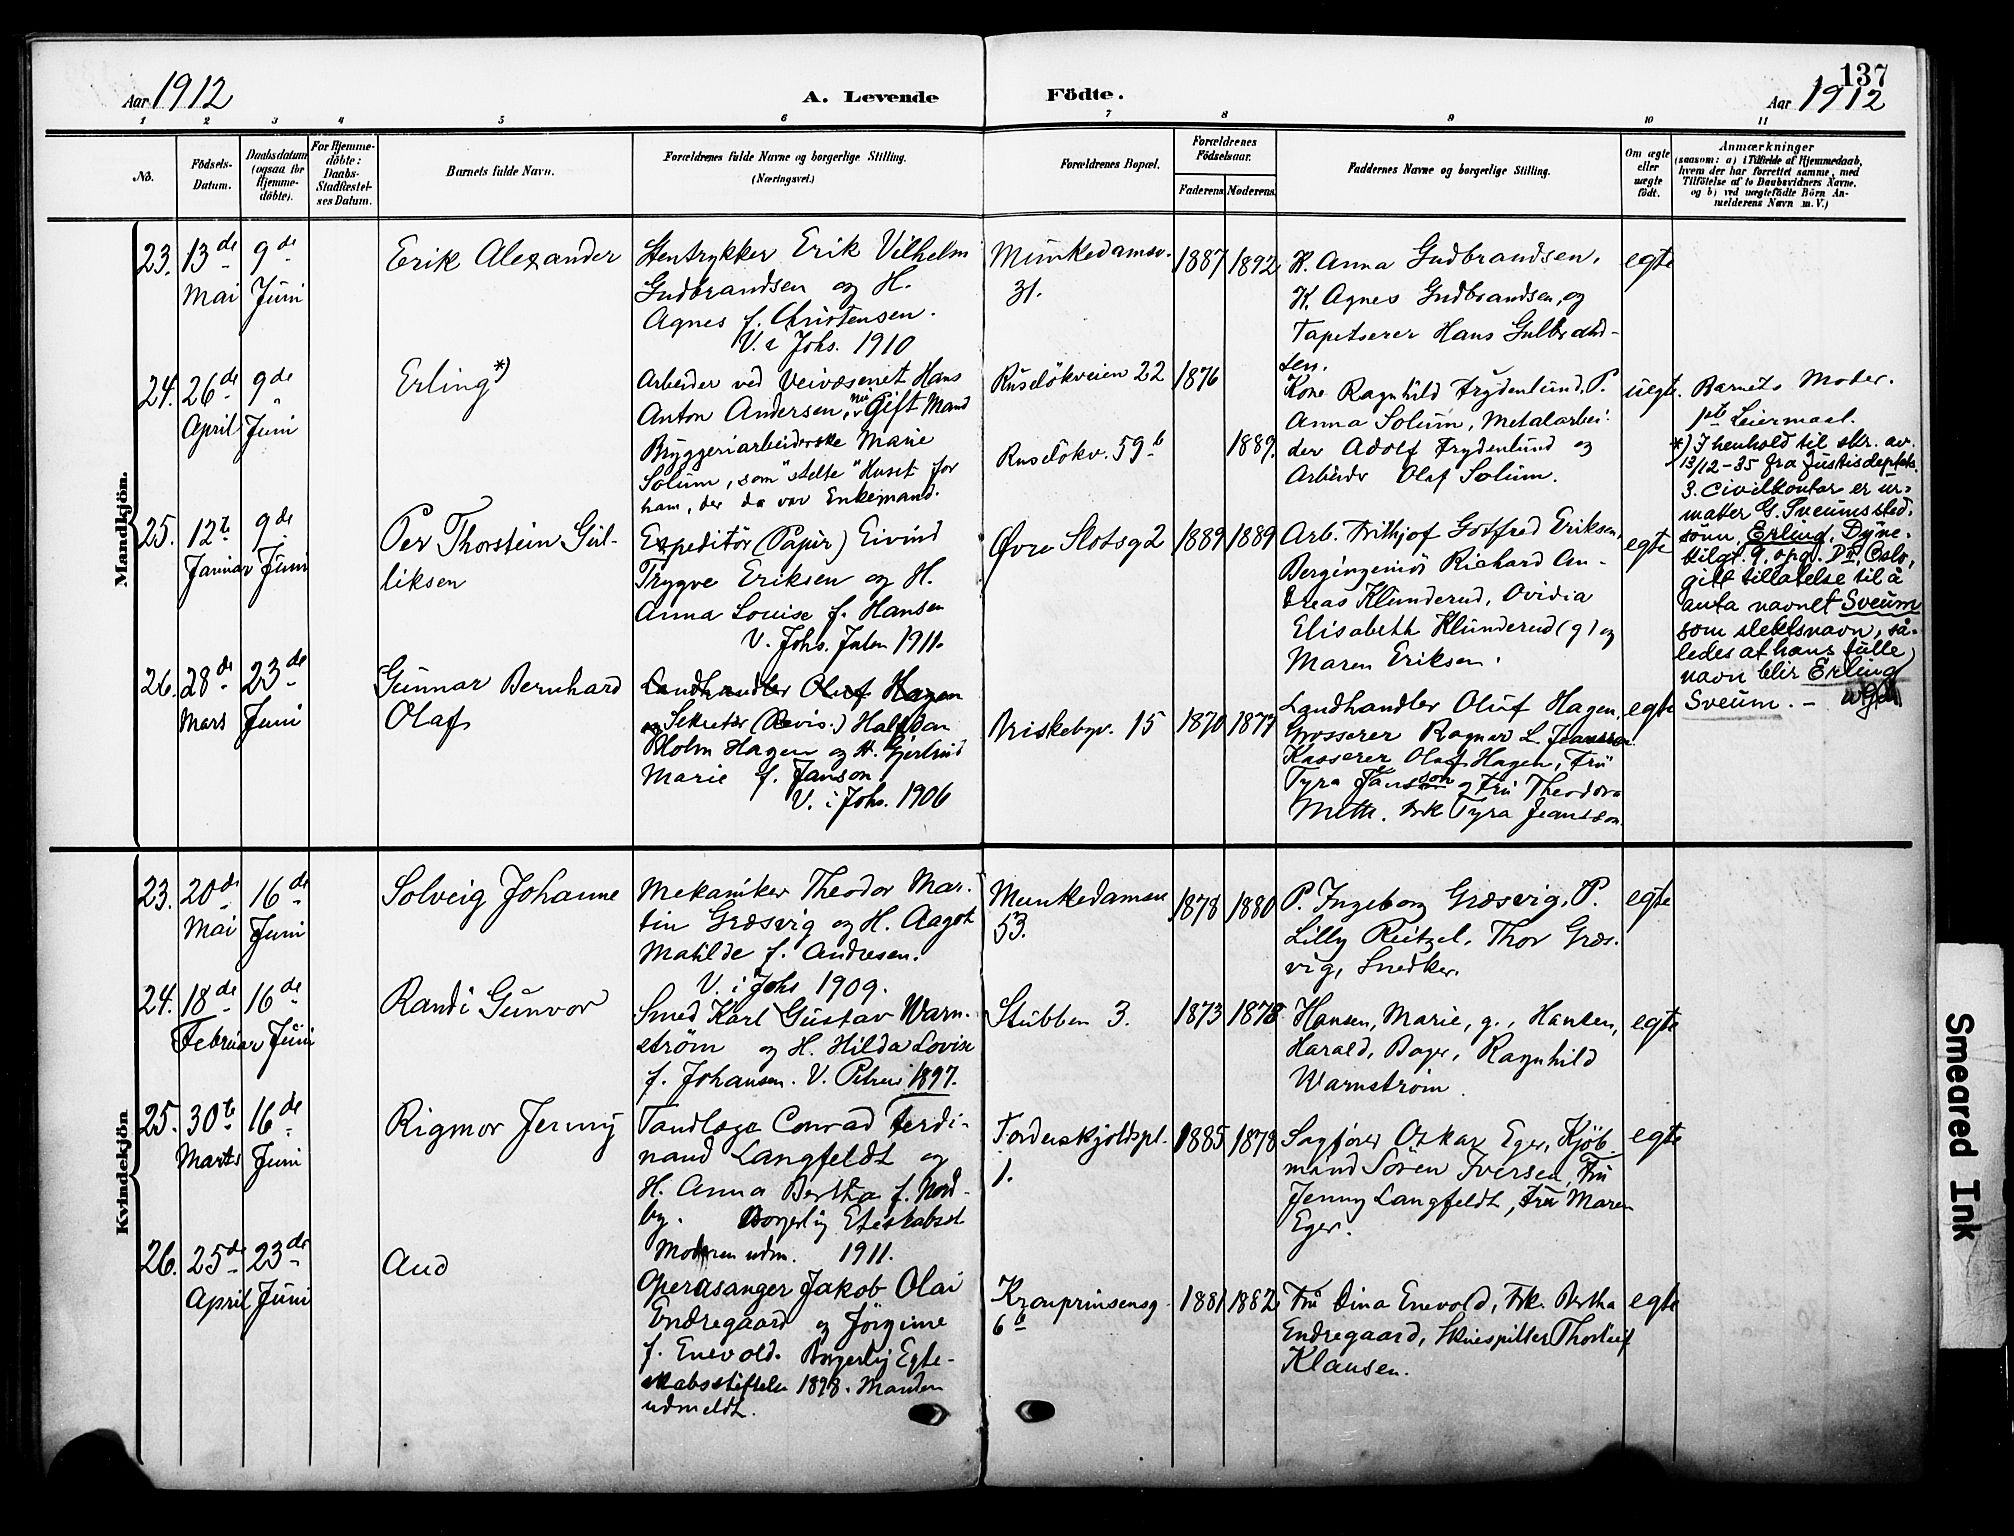 137
Aar 1912
A. Levende Födte.
Aar 1912
1 2 3 4 5 6 7 8 9 10 11
No.
Födsels-
Datum.
Daabsdatum
(ogsaa for
Hjemme-
döbte).
For Hjemme-
döbte:
Daabs-
Stadfæstel-
ses Datum.
Barnets fulde Navn.
Forældrenes fulde Navne og borgerlige Stilling.
(Næringsvei.)
Forældrenes Bopæl.
Forældrenes
Födselsaar.
Faderens.
Moderens.
Faddernes Navne og borgerlige Stilling.
Om ægte
eller
uægte
født.
Anmærkninger
(saasom: a) i Tilfælde af Hjemmedaab,
hvem der har forrettet samme, med
Tilföielse af to Daabsvidners Navne.
og b) ved uægtefödte Börn An-
melderens Navn m. V.)
Mandkjön.
23.
13de
Mai
9de
Juni
Erik Alexander
Stentrykker Erik Vilhelm
Gudbrandsen og H.
Agnes f. Christensen.
V. i Johs. 1910
Munkedamsv.
31.
1887
1892
K. Anna Gudbrandsen,
K. Agnes Gudbrandsen, og
Tapetserer Hans Gulbrand-
sen.
egte
24.
26de
April
9de
Juni
Erling*)
Arbeider ved Veivæsenet Hans
Anton Andersen, nu Gift Mand
Bryggeriarbeiderske Marie
Solum, som "stelte" Huset for
ham, der da var Enkemand.
Rusdökveien 22
Rusdökv. 59b
1876
1889.
Kone Ragnhild Frydenlund, P.
Anna Solum, Metalarbei-
der Adolf Frydenlund og
Arbeider Olaf Solum.
uegte.
Barnets Moder.
1ste Leiermaal.
*) I henhold til skr. av
13/12-35 fra Justisdeptets
3. civilkontor er ur-
maker G. Sveums sted-
sönn, Erling, Dyne-
kilgt. 9, opg. D II, Oslo,
gitt tillatelse til å
anta navnet Sveum
som slektsnavn, så-
ledes at hans fulle
navn blir Erling
Sveum. –
25.
12te
Januar
9de
Juni
Per Thorstein Gul-
liksen
Expeditör (Papir) Eivind
Trygve Eriksen og H.
Anna Louise f. Hansen
V. Johs. Julen 1911.
Øvre Slotsg 2
1889
1889
Arb. Frithjof Gotfred Eriksen,
Bergingeniör Richard An-
dreas Klunderud, Ovidia
Elisabeth Klunderud (g) og
Maren Eriksen.
egte
26.
28de
Mars
23de
Juni
Gunnar Bernhard
Olaf
Landhandler Oluf Hagen
og Sekretær (Revis.) Halfdan
Holm Hagen og H. Gjertrud
Marie f. Janson
V. i Johs. 1906
Briskebyv. 15
1870
1877
Landhandler Oluf Hagen,
Grosserer Ragnar L. Jeansson
Kasserer Olaf Hagen, Fru
Tyra Jansson og Fru Theodora
Frk Tyra Jeansson.
egte
Kvindekjön
23.
20de
Mai
16de
Juni
Solveig Johanne
Mekaniker Theodor Mar-
tin Græsvig og H. Aagot
Matilde f. Andresen.
V. i Johs 1909.
Munkedamsv
53.
1878
1880
P. Ingeborg Græsvig, P.
Lilly Reitzel, Thor Græs-
vig, Snedker.
egte
24.
18de
Februar
16de
Juni
Randi Gunvor
Smed Karl Gustav Warn-
ström og H. Hilda Lovise
f. Johansen. V. Petrus 1897.
Stubben 3.
1873
1878
Hansen, Marie, g., Hansen,
Harald, Bager, Ragnhild
Warnström.
egte
25.
30te
Marts
16de
Juni
Rigmor Jenny
Tandlæge Conrad Ferdi-
nand Langfeldt og
H. Anna Bertha f. Nord-
by. Borgerlig Eteskabsst
Moderen udm. 1911.
Tordenskjoldspl.
1.
1885
1878
Sagförer Oskar Eger, Kjöb-
mand Sören Iversen, Fru
Jenny Langfeldt, Fru Maren
Eger.
egte
26.
25de
April
23de
Juni
Aud
Operasanger Jakob Olai
Endregaard og Jörgine
f. Enevold. Borgerlig Egte-
skabsstiftelse 1898. Manden
udmeldt.
Kronprinsensg.
6b
1881
1882
Fru Dina Enevold, Frk. Bertha
Endregaard, Skuespiller Thorleif
Klausen.
egte
Smeared Ink